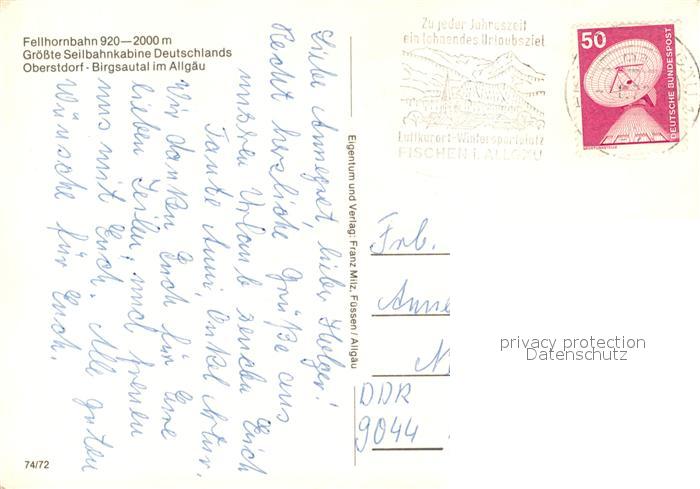 Fellhornbahn 920—2000 m
Größte Seilbahnkabine Deutschlands
Oberstdorf - Birgsautal im Allgäu
Liebe Annegret, lieber Holger!
Recht herzliche Grüße aus
unserem Urlaub senden Euch
Tante Anni, Onkel Artur.
Wir danken Euch für Eure
lieben Zeilen, und freuen
uns mit Euch. Alle guten
Wünsche für Euch.
74/72
Eigentum und Verlag: Franz Milz, Füssen / Allgäu
Zu jeder Jahreszeit
ein lohnendes Urlaubsziel
Luftkurort-Wintersportplatz
FISCHEN i. ALLGÄU
50
DEUTSCHE BUNDESPOST
Frb.
Anne
DDR
9044
privacy protection
Datenschutz